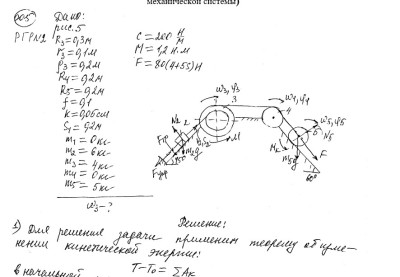 механической системы)
605
Дано:
рис.5
РГР№2
R₃ = 0,3м
r₃ = 0,1м
ρ₃ = 0,2м
R₄ = 0,2м
R₅ = 0,2м
f = 0,1
k = 0,05см
S₁ = 0,2м
m₁ = 0 кг
m₂ = 6 кг
m₃ = 4 кг
m₄ = 0 кг
m₅ = 5 кг
ω₃ - ?
C = 200 Н/м
M = 1,2 Н.м
F = 80(4+5S) Н
ω₃, φ₃
3
ω₁, φ₁
4
ω₅, φ₅
N₅
N₂
2
Fтр
Fупр
m₂g
M
m₅g
F
60°
Решение:
1) Для решения задачи применим теорему об изме-
нении кинетической энергии:
T-T₀ = ΣAк
в начальной